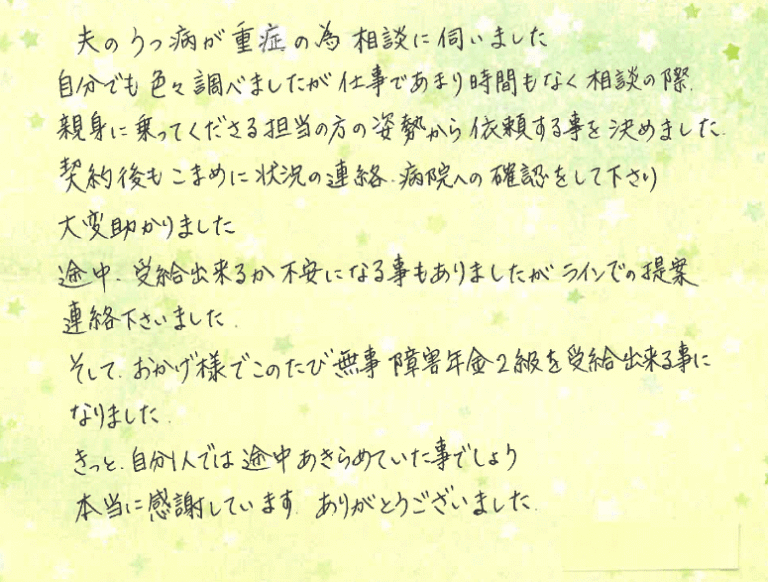 夫のうつ病が重症の為相談に伺いました
自分でも色々調べましたが仕事であまり時間もなく相談の際、
親身に乗ってくださる担当の方の姿勢から依頼する事を決めました。
契約後もこまめに状況の連絡、病院への確認をして下さり
大変助かりました
途中、受給出来るか不安になる事もありましたがラインでの提案
連絡下さいました。
そして、おかげ様でこのたび無事障害年金2級を受給出来る事に
なりました。
きっと、自分1人では途中あきらめていた事でしょう
本当に感謝しています。ありがとうございました。